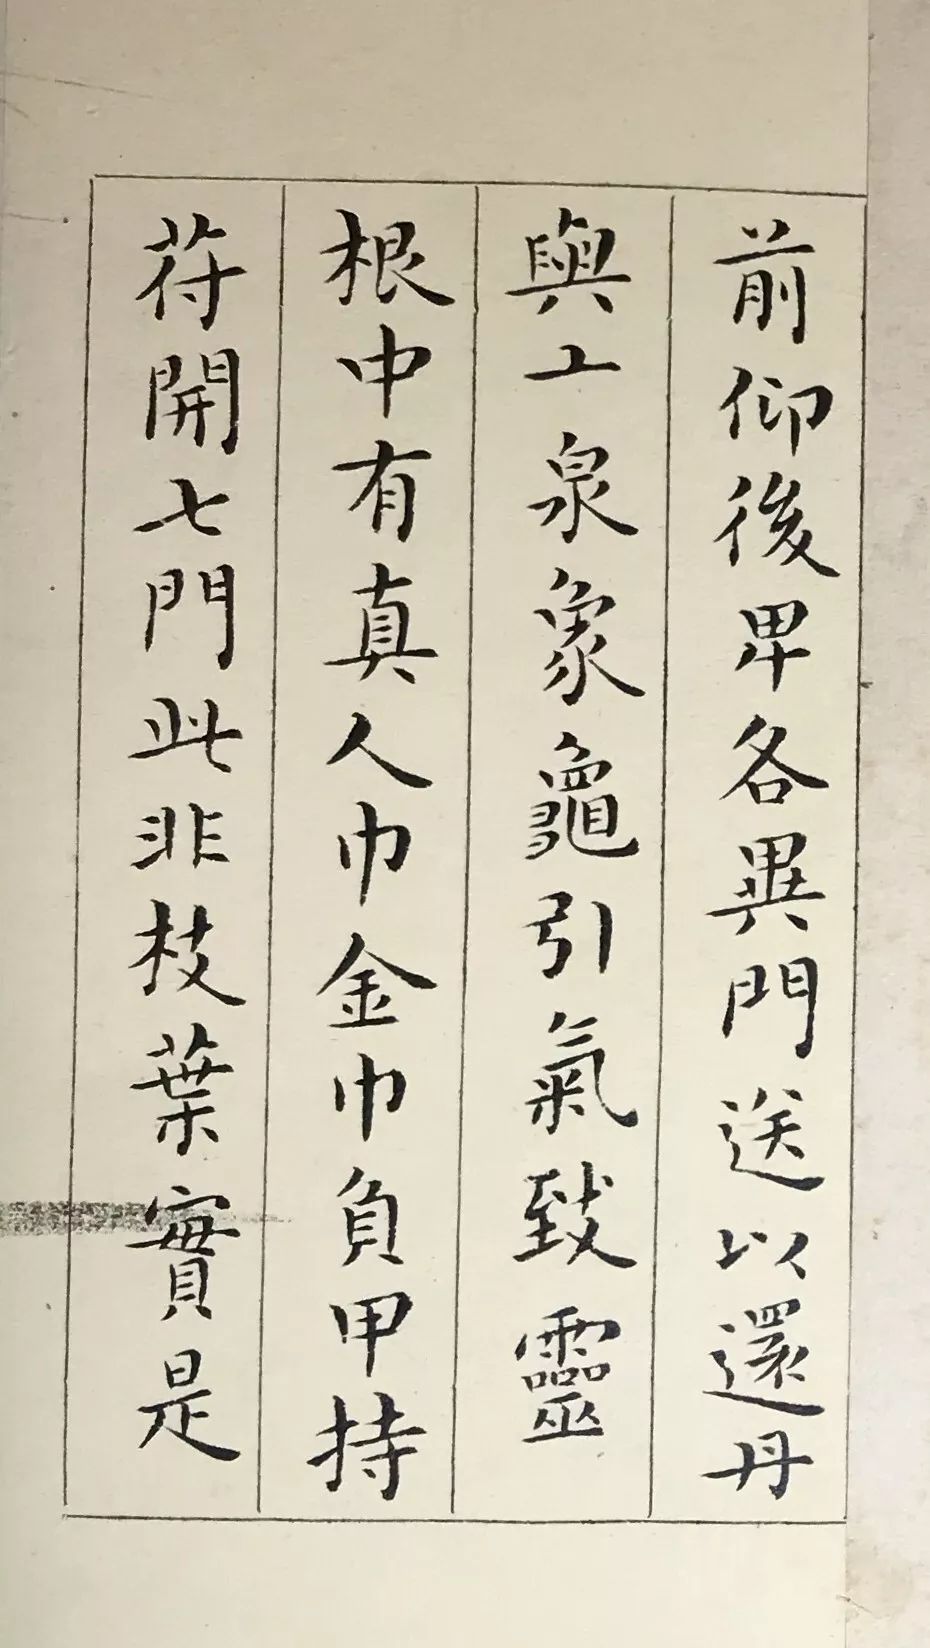 前仰後卑各異門送以還丹
與工泉象龜引氣致靈
根中有真人巾金巾負甲持
苻開七門此非枝葉實是